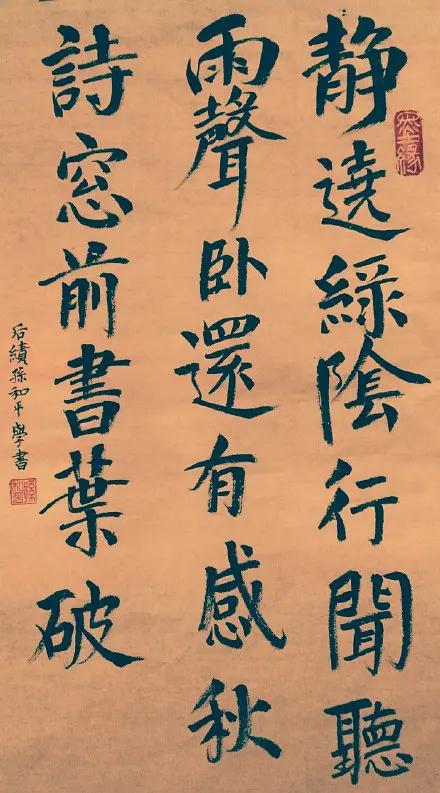 静遶緑隂行聞聽
雨聲卧還有感秋
詩窓前書葉破
后績孫和平學書